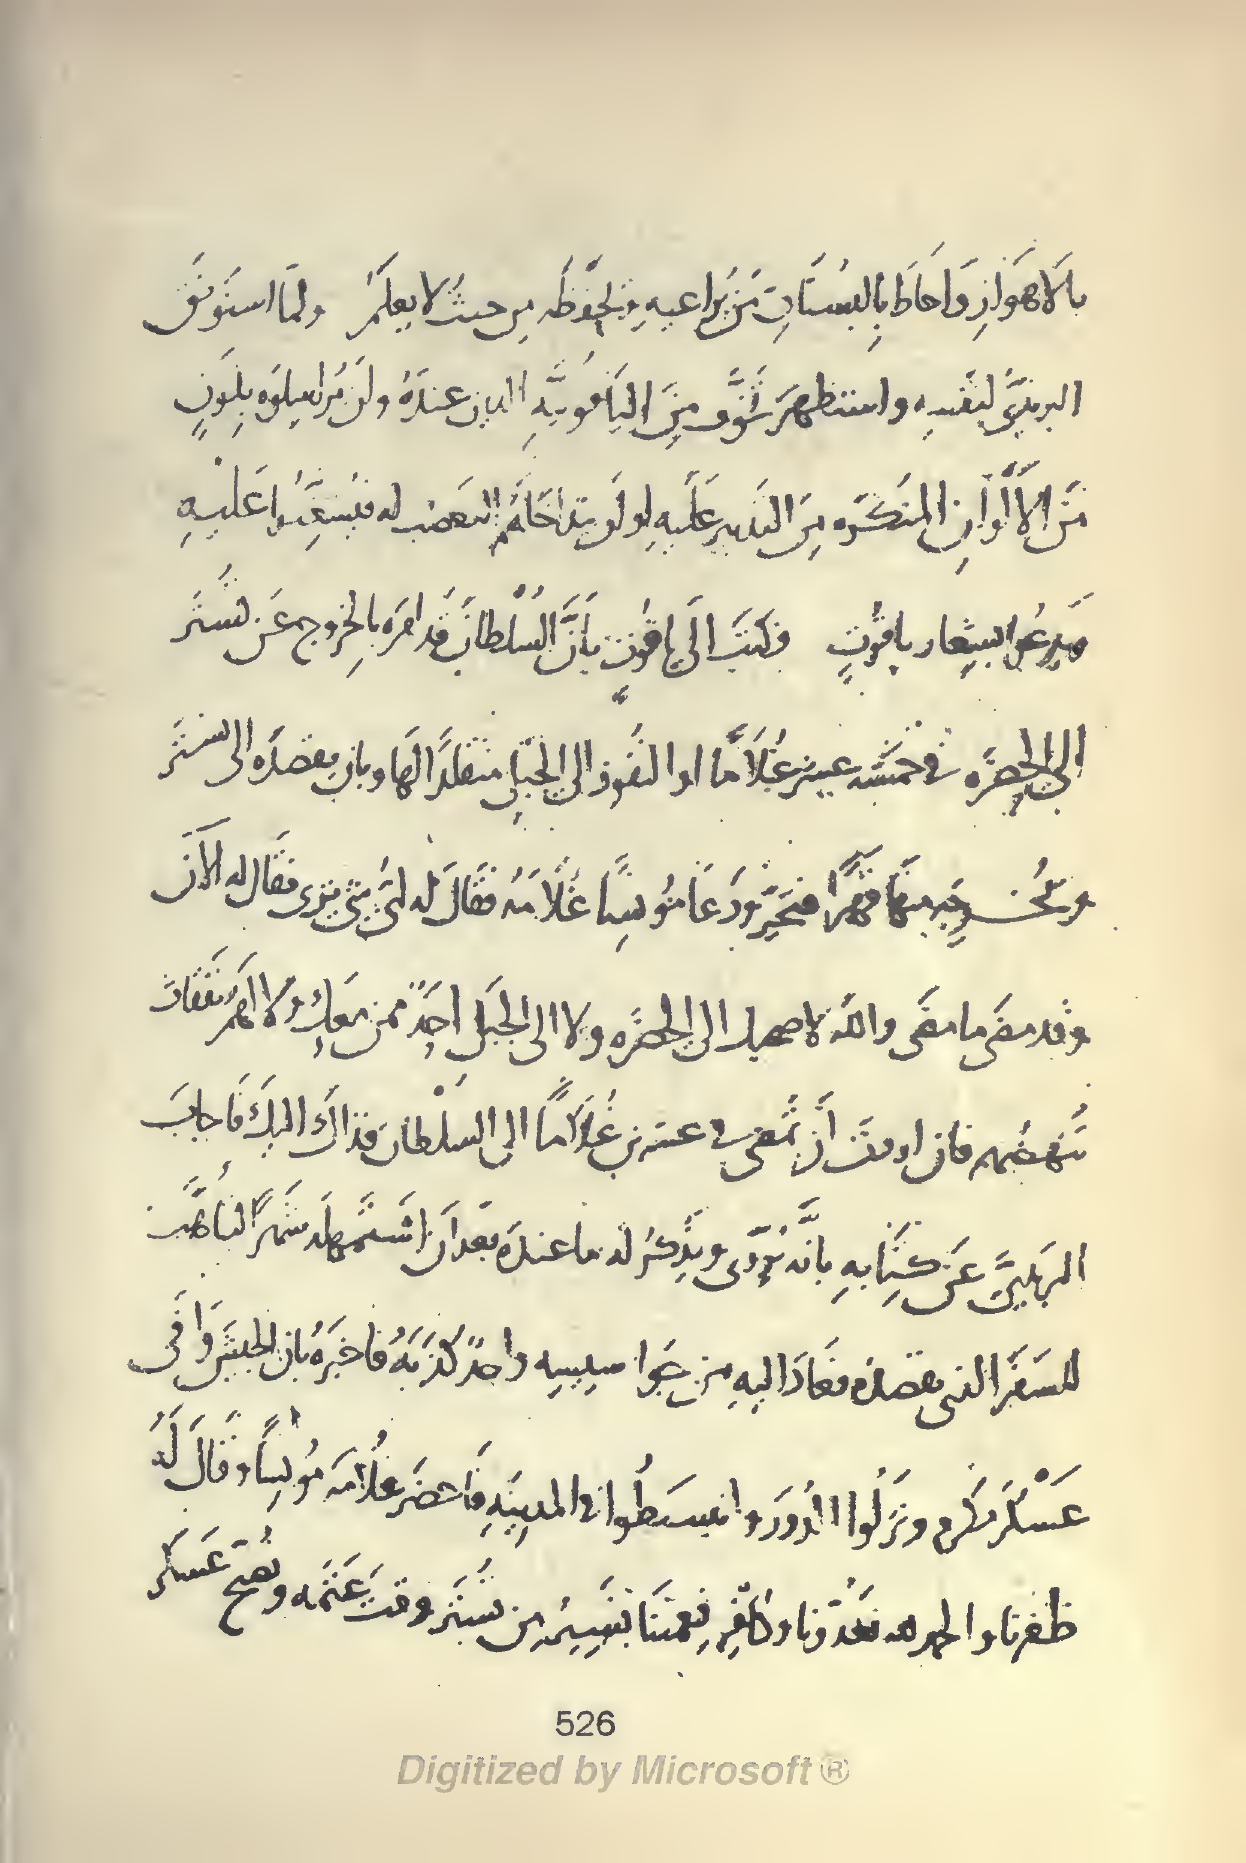 بالاهواز واحاط بالبستان من يراعيه ويحفظه من حيث لا يعلم ولما استوثق
البريدي لنفسه واستظهر تخوف من الياقوتية الذين عنده ولن يراسلوه بلون
من الالوان المنكره من التدبير عليه او لن يتداخله التعصب له فيشغبوا عليه
ويدعوا بشعار ياقوت فكتب الى ياقوت بأن السلطان قد امره بالخروج عن تستر
الى الحضره في خمسه عشر غلاما او النفوذ الى الجبل متقلدا لها وبان يقصده الى تستر
ويخرجه منها قهرا فتحير ودعا مونسا غلامه فقال له اى شى ترى فقال له الآن
وقد مضى ما مضى والله لا صحبك الى الحضره ولا الى الجبل احد ممن معك ولا لهم نفقات
تنهضهم فان اردت أن تمضي في عشرين غلاما الى السلطان فذاك اليك فاجاب
البريدي عن كتابه بانه يروى ويذكر له ما عنده بعد ان استمهله شهرا لتأهب
للسفر الذى يقصده فعاد اليه من جواسيسه واحد كذبه فاخبره بان الجيش وافى
عسكر مكرم ونزلوا الدور وانبسطوا في المدينه فأحضر غلامه مونسا وقال له
ظفرنا والحمد لله بعدونا وكافر نعمتنا نسير من تستر وقت عتمه ونصبح عسكر
526
Digitized by Microsoft ®